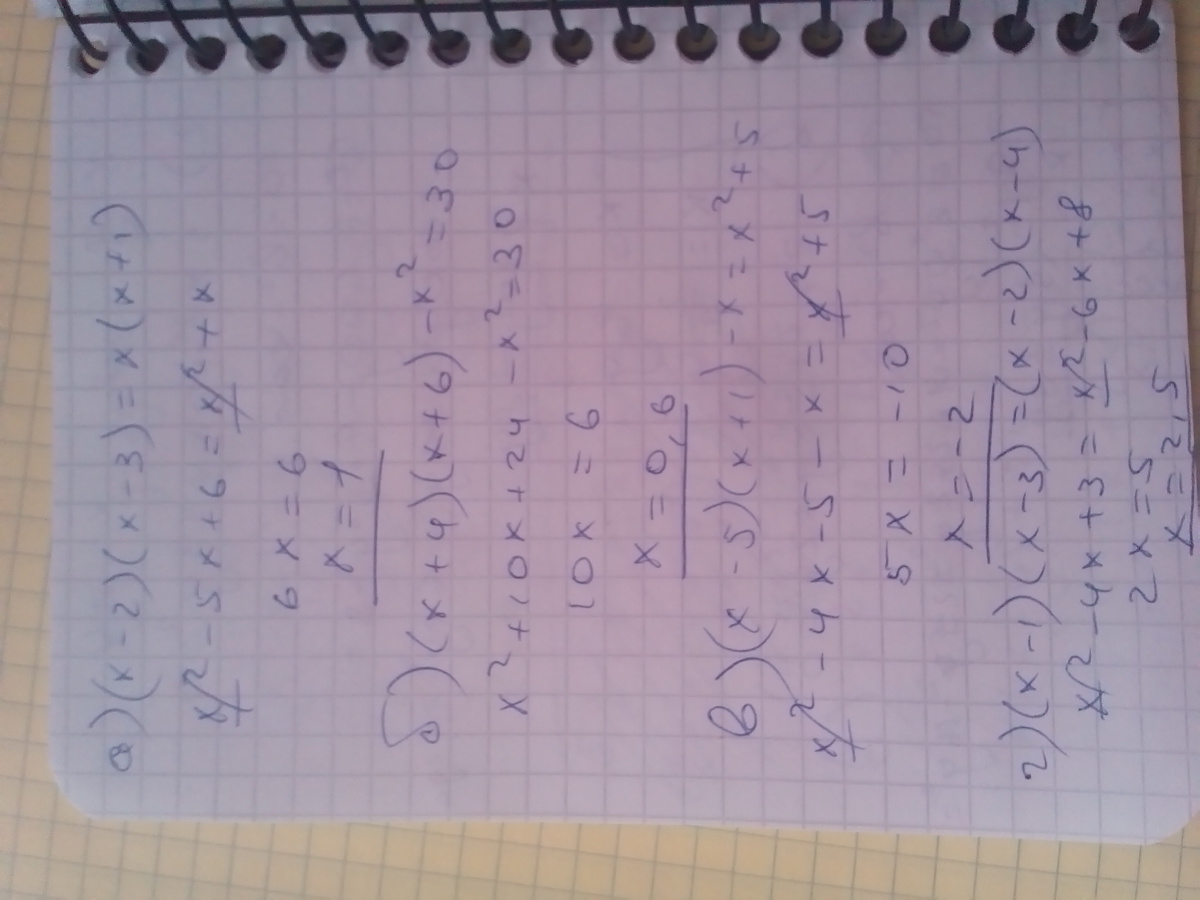 а) (x-2)(x-3) = x(x+1)
x² - 5x + 6 = x² + x
6x = 6
x = 1
б) (x+4)(x+6) - x² = 30
x² + 10x + 24 - x² = 30
10x = 6
x = 0,6
в) (x-5)(x+1) - x = x² + 5
x² - 4x - 5 - x = x² + 5
5x = -10
x = -2
г) (x-1)(x-3) = (x-2)(x-4)
x² - 4x + 3 = x² - 6x + 8
2x = 5
x = 2,5